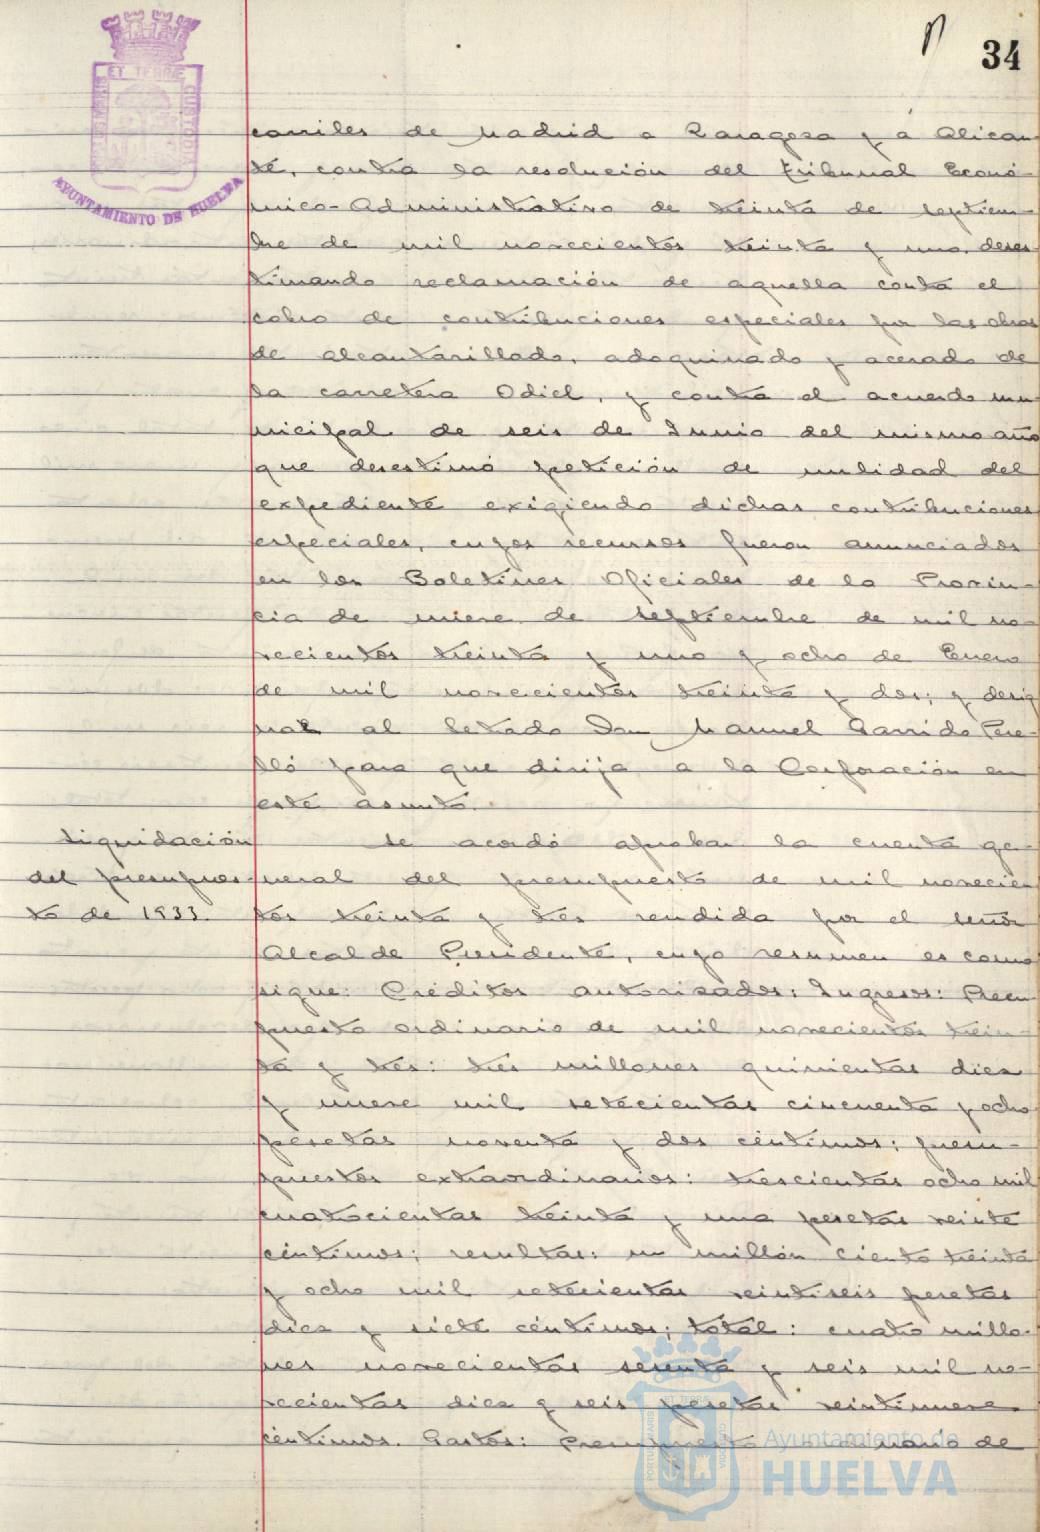 34
ET TERRÆ
PORTUS MARIS
CUSTODIA
AYUNTAMIENTO DE HUELVA
carriles de Madrid a Zaragoza y á Alican-
te, contra la resolución del tribunal Econó-
mico-Administrativo de treinta de septiem-
bre de mil novecientos treinta y uno, deses-
timando reclamación de aquella contra el
cobro de contribuciones especiales por las obras
de alcantarillado, adoquinado y acerado de
la carretera Odiel, y contra el acuerdo mu-
nicipal de seis de Junio del mismo año
que desestimó petición de nulidad del
expediente exigiendo dichas contribuciones
especiales, cuyos recursos fueron anunciados
en los Boletines Oficiales de la Provin-
cia de nueve de septiembre de mil no-
vecientos treinta y uno y ocho de Enero
de mil novecientos treinta y dos; y desig-
nar al letrado Don Manuel Garrido Pere-
lló para que dirija a la Corporación en
este asunto.
Liquidación
del presupues-
to de 1933.
Se acordó aprobar la cuenta ge-
neral del presupuesto de mil novecien-
tos treinta y tres rendida por el señor
Alcalde Presidente, cuyo resumen es como
sigue: Créditos autorizados: Ingresos: Presu-
puesto ordinario de mil novecientos trein-
ta y tres: tres millones quinientas diez
y nueve mil setecientas cincuenta y ocho
pesetas noventa y dos céntimos; presu-
puestos extraordinarios: trescientas ocho mil
cuatrocientas treinta y una pesetas veinte
céntimos; resultas: un millón ciento treinta
y ocho mil setecientas veintiseis pesetas
diez y siete céntimos; total: cuatro millo-
nes novecientas sesenta y seis mil no-
vecientas diez y seis pesetas veintinueve
céntimos. Gastos: Presupuesto ordinario de
Ayuntamiento de
HUELVA